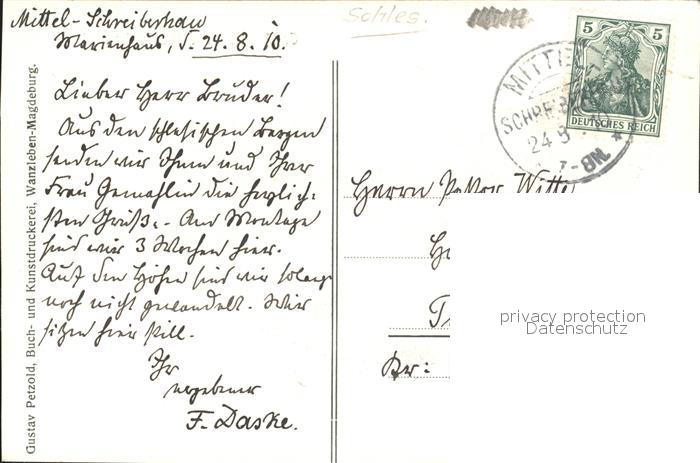 Mittel-Schreiberhau
Marienhaus, d. 24. 8. 10.
Schles.
Lieber Herr Bruder!
Aus den schlesischen Bergen
senden wir Ihnen und Ihrer
Frau Gemahlin die herzlich-
sten Grüße. - Am Montage
sind wir 3 Wochen hier.
Auf den Höhen sind wir solange
noch nicht gewandelt. Wir
sitzen hier still.
Ihr
ergebener
F. Daske.
Gustav Petzold, Buch- und Kunstdruckerei, Wanzleben-Magdeburg.
5 5
DEUTSCHES REICH
MITTEL
SCHREIBERHAU
24 8
7-8N.
Herrn Pastor Witte
Kr:
privacy protection
Datenschutz